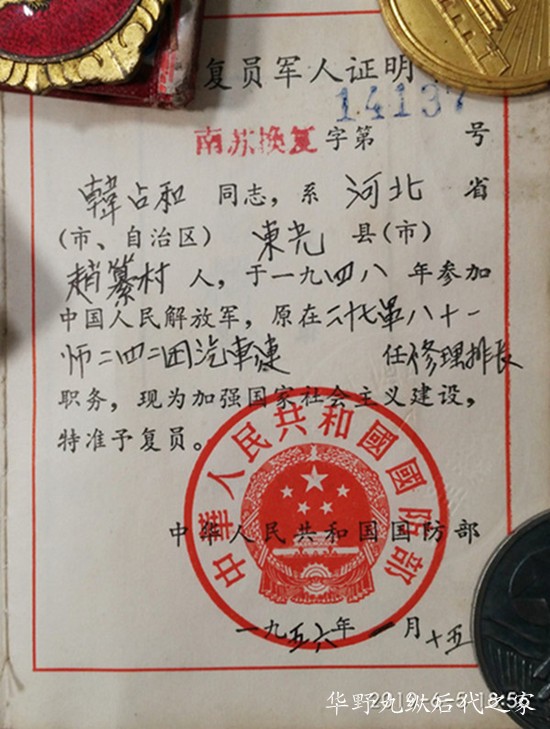 复员军人证明
14137
南苏换复 字第 号
韓占和 同志，系 河北 省
(市、自治区) 東光 县(市)
趙纂村 人，于一九四八年参加
中国人民解放军，原在二七军八十一
师二四二团汽車連 任修理排长
职务，现为加强国家社会主义建设，
特准予复员。
中華人民共和國國防部
中华人民共和国国防部
一九五六年一月十五
华野九纵后代之家